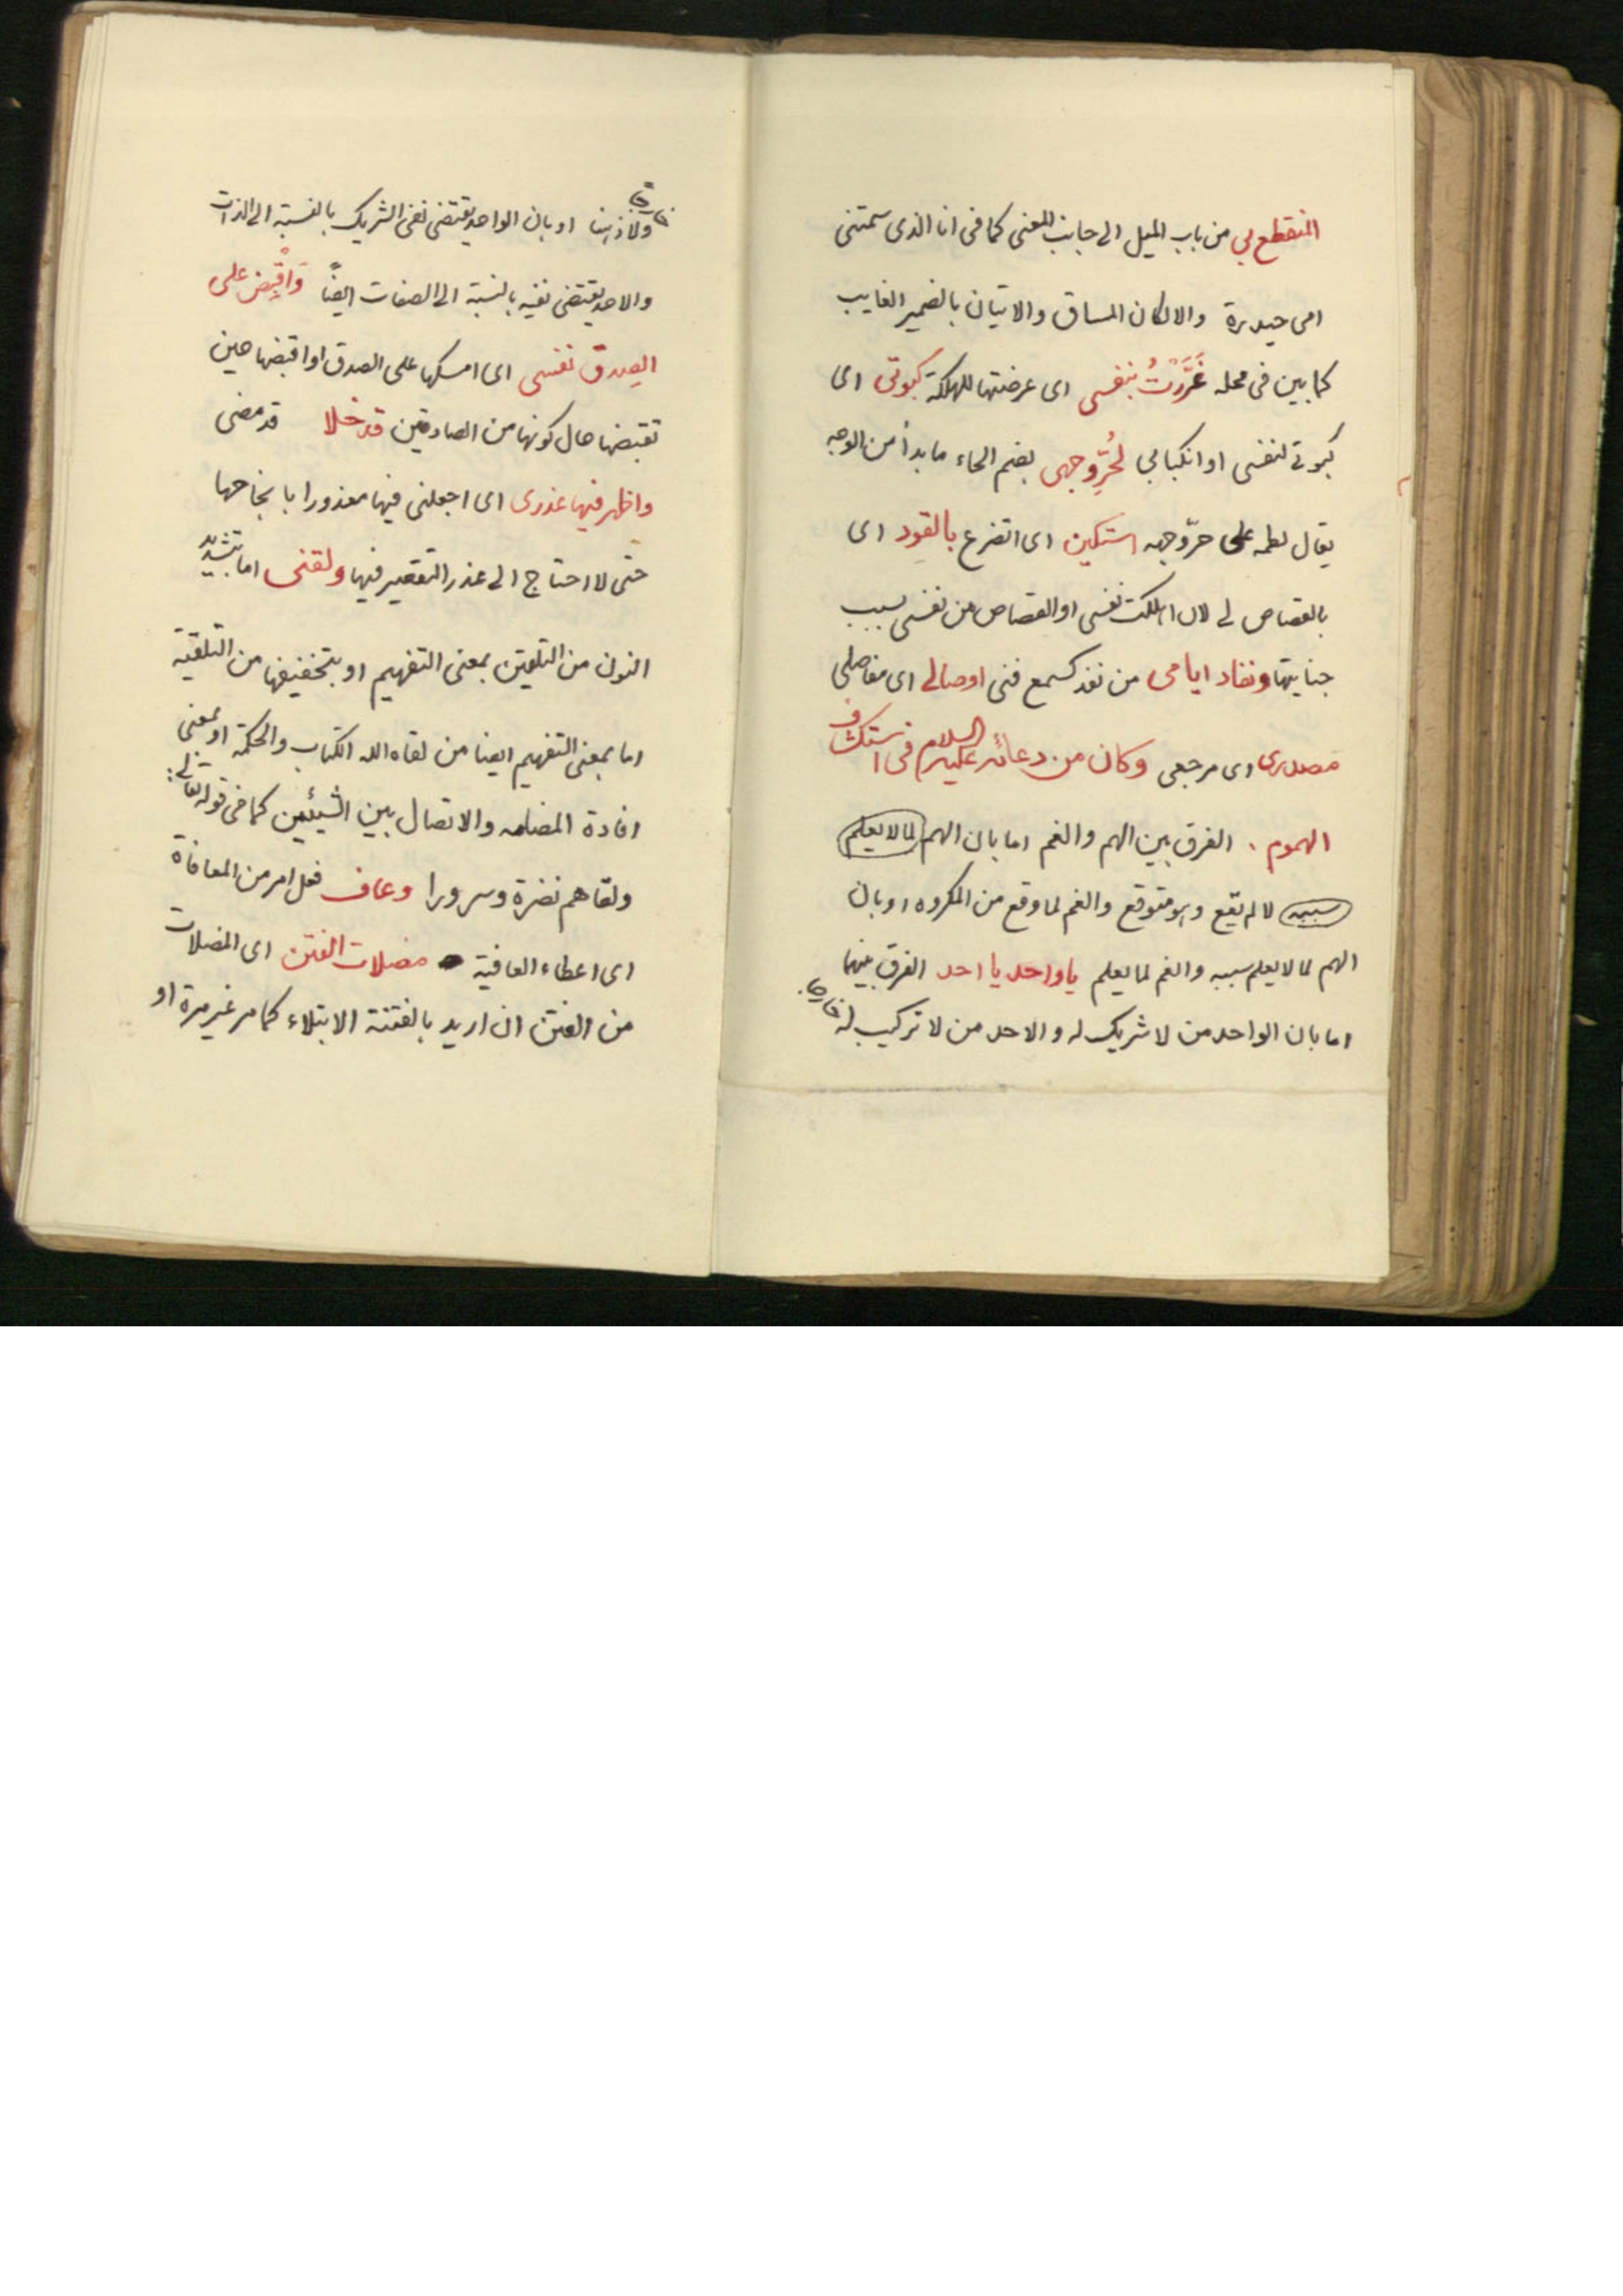 المنقطع بي من باب الميل الى جانب المعنى كما فى انا الذى سمتنى
امى حيدرة والا لكان المساق والاتيان بالضمير الغايب
كما بين فى محله غَرَّرْتُ بنفسى اى عرضتها للهلكة كبوتى اى
كبوتى لنفسى او انكبابي لحُرِّ وجهى بضم الحاء ما بدأ من الوجه
يقال لطمه على حرّ وجهه استكين اى اتضرع بالقود اى
بالقصاص لى لان اهلكت نفسى او القصاص من نفسى بسبب
جنايتها ونفاد ايامى من نفد كسمع فنى اوصالى اى مفاصلى
مصدرى اى مرجعى وكان من دعائه عليه السلام فى استكشاف
الهموم . الفرق بين الهم والغم اما بان الهم لما لا يعلم
سببه لا لم يقع وهو متوقع والغم لما وقع من المكروه او بان
الهم لما لا يعلم سببه والغم لما يعلم يا واحد يا احد الفرق بينهما
اما بان الواحد من لا شريك له والاحد من لا تركيب له خارجا
ولا ذهنا او بان الواحد يقتضى نفى الشريك بالنسبة الى الذات
والاحد يقتضى نفيه بالنسبة الى الصفات ايضاً وَاقْبِض على
الصدق نفسى اى امسكها على الصدق او اقبضها حين
تقبضها حال كونها من الصادقين قد خلا قد مضى
واظهر فيها عذرى اى اجعلنى فيها معذورا بانجاحها
حتى لا احتاج الى عذر التقصير فيها ولقنى اما بتشديد
النون من التلقين بمعنى التفهيم او بتخفيفها من التلقية
اما بمعنى التفهيم ايضا من لقاه الله الكتاب والحكمة او بمعنى
افادة المضامه والاتصال بين الشيئين كما فى قوله تعالى:
ولقاهم نضرة وسرورا وعاف فعل امر من المعافاة
اى اعطاء العافية مضلات الفتن اى المضلات
من الفتن ان اريد بالفتنة الابتلاء كما مر غير مرة او